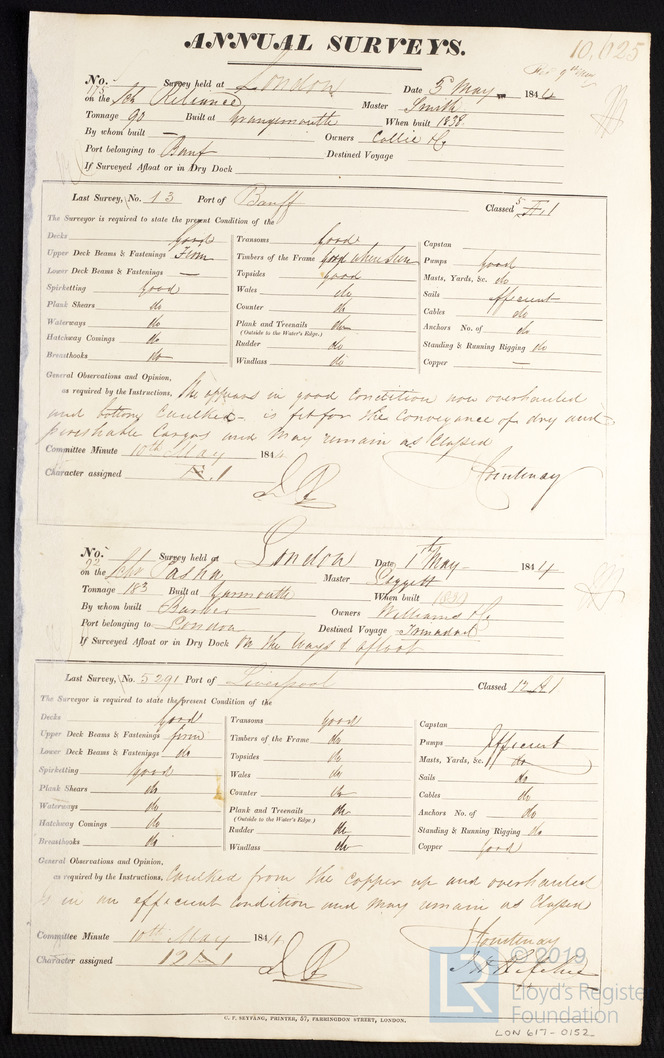 ANNUAL SURVEYS. 10,025
No. 175 Survey held at London Date 5 May 1844
on the Sch Reliance Master Smith
Tonnage 90 Built at Grangemouth When built 1838
By whom built — Owners Collie & Co
Port belonging to Banf Destined Voyage
If Surveyed Afloat or in Dry Dock
Last Survey, No. 13 Port of Banff Classed 5 A.1
The Surveyor is required to state the present Condition of the
Decks good Transoms good Capstan
Upper Deck Beams & Fastenings Firm Timbers of the Frame good where seen Pumps Good
Lower Deck Beams & Fastenings — Topsides good Masts, Yards, &c. do
Spirketting good Wales do Sails efficient
Plank Shears do Counter do Cables do
Waterways do Plank and Treenails do Anchors No. of do
(Outside to the Water's Edge.)
Hatchway Comings do Rudder do Standing & Running Rigging do
Breasthooks do Windlass do Copper —
General Observations and Opinion,
as required by the Instructions, She appears in good condition now overhauled
and bottom Caulked - is fit for the conveyance of dry and
perishable Cargos and may remain as Classed
Committee Minute 10th May 1844 Courtenay
Character assigned A.1
No. Survey held at London Date 1st May 1844
on the Pasha Master Leggett
Tonnage 183 Built at Yarmouth When built 1839
By whom built Barber Owners Williams & Co
Port belonging to London Destined Voyage Trinidad
If Surveyed Afloat or in Dry Dock On the Ways & afloat
Last Survey, No. 5291 Port of Liverpool Classed 12 A1
The Surveyor is required to state the present Condition of the
Decks good Transoms good Capstan
Upper Deck Beams & Fastenings firm Timbers of the Frame do Pumps Efficient
Lower Deck Beams & Fastenings do Topsides do Masts, Yards, &c. do
Spirketting good Wales do Sails do
Plank Shears do Counter do Cables do
Waterways do Plank and Treenails do Anchors No. of do
(Outside to the Water's Edge.)
Hatchway Comings do Rudder do Standing & Running Rigging do
Breasthooks do Windlass do Copper Good
General Observations and Opinion,
as required by the Instructions, Caulked from the copper up and overhauled
Is in an efficient condition and may remain as Classed
Committee Minute 10th May 1844 Courtenay
Character assigned 12 A 1
C. F. SEYFANG, PRINTER, 57, FARRINGDON STREET, LONDON.
LR © 2019
Lloyd's Register
Foundation
LON 617-0152